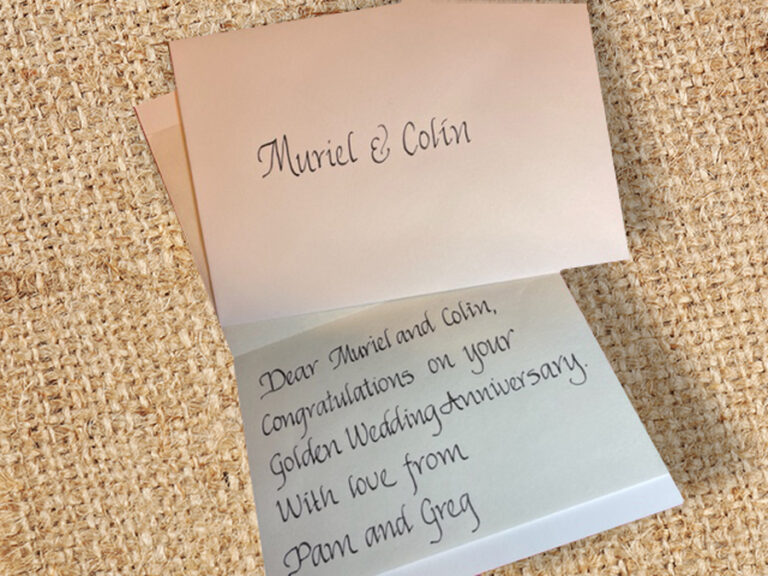 Muriel & Colin
Dear Muriel and Colin,
Congratulations on your
Golden Wedding Anniversary.
With love from
Pam and Greg